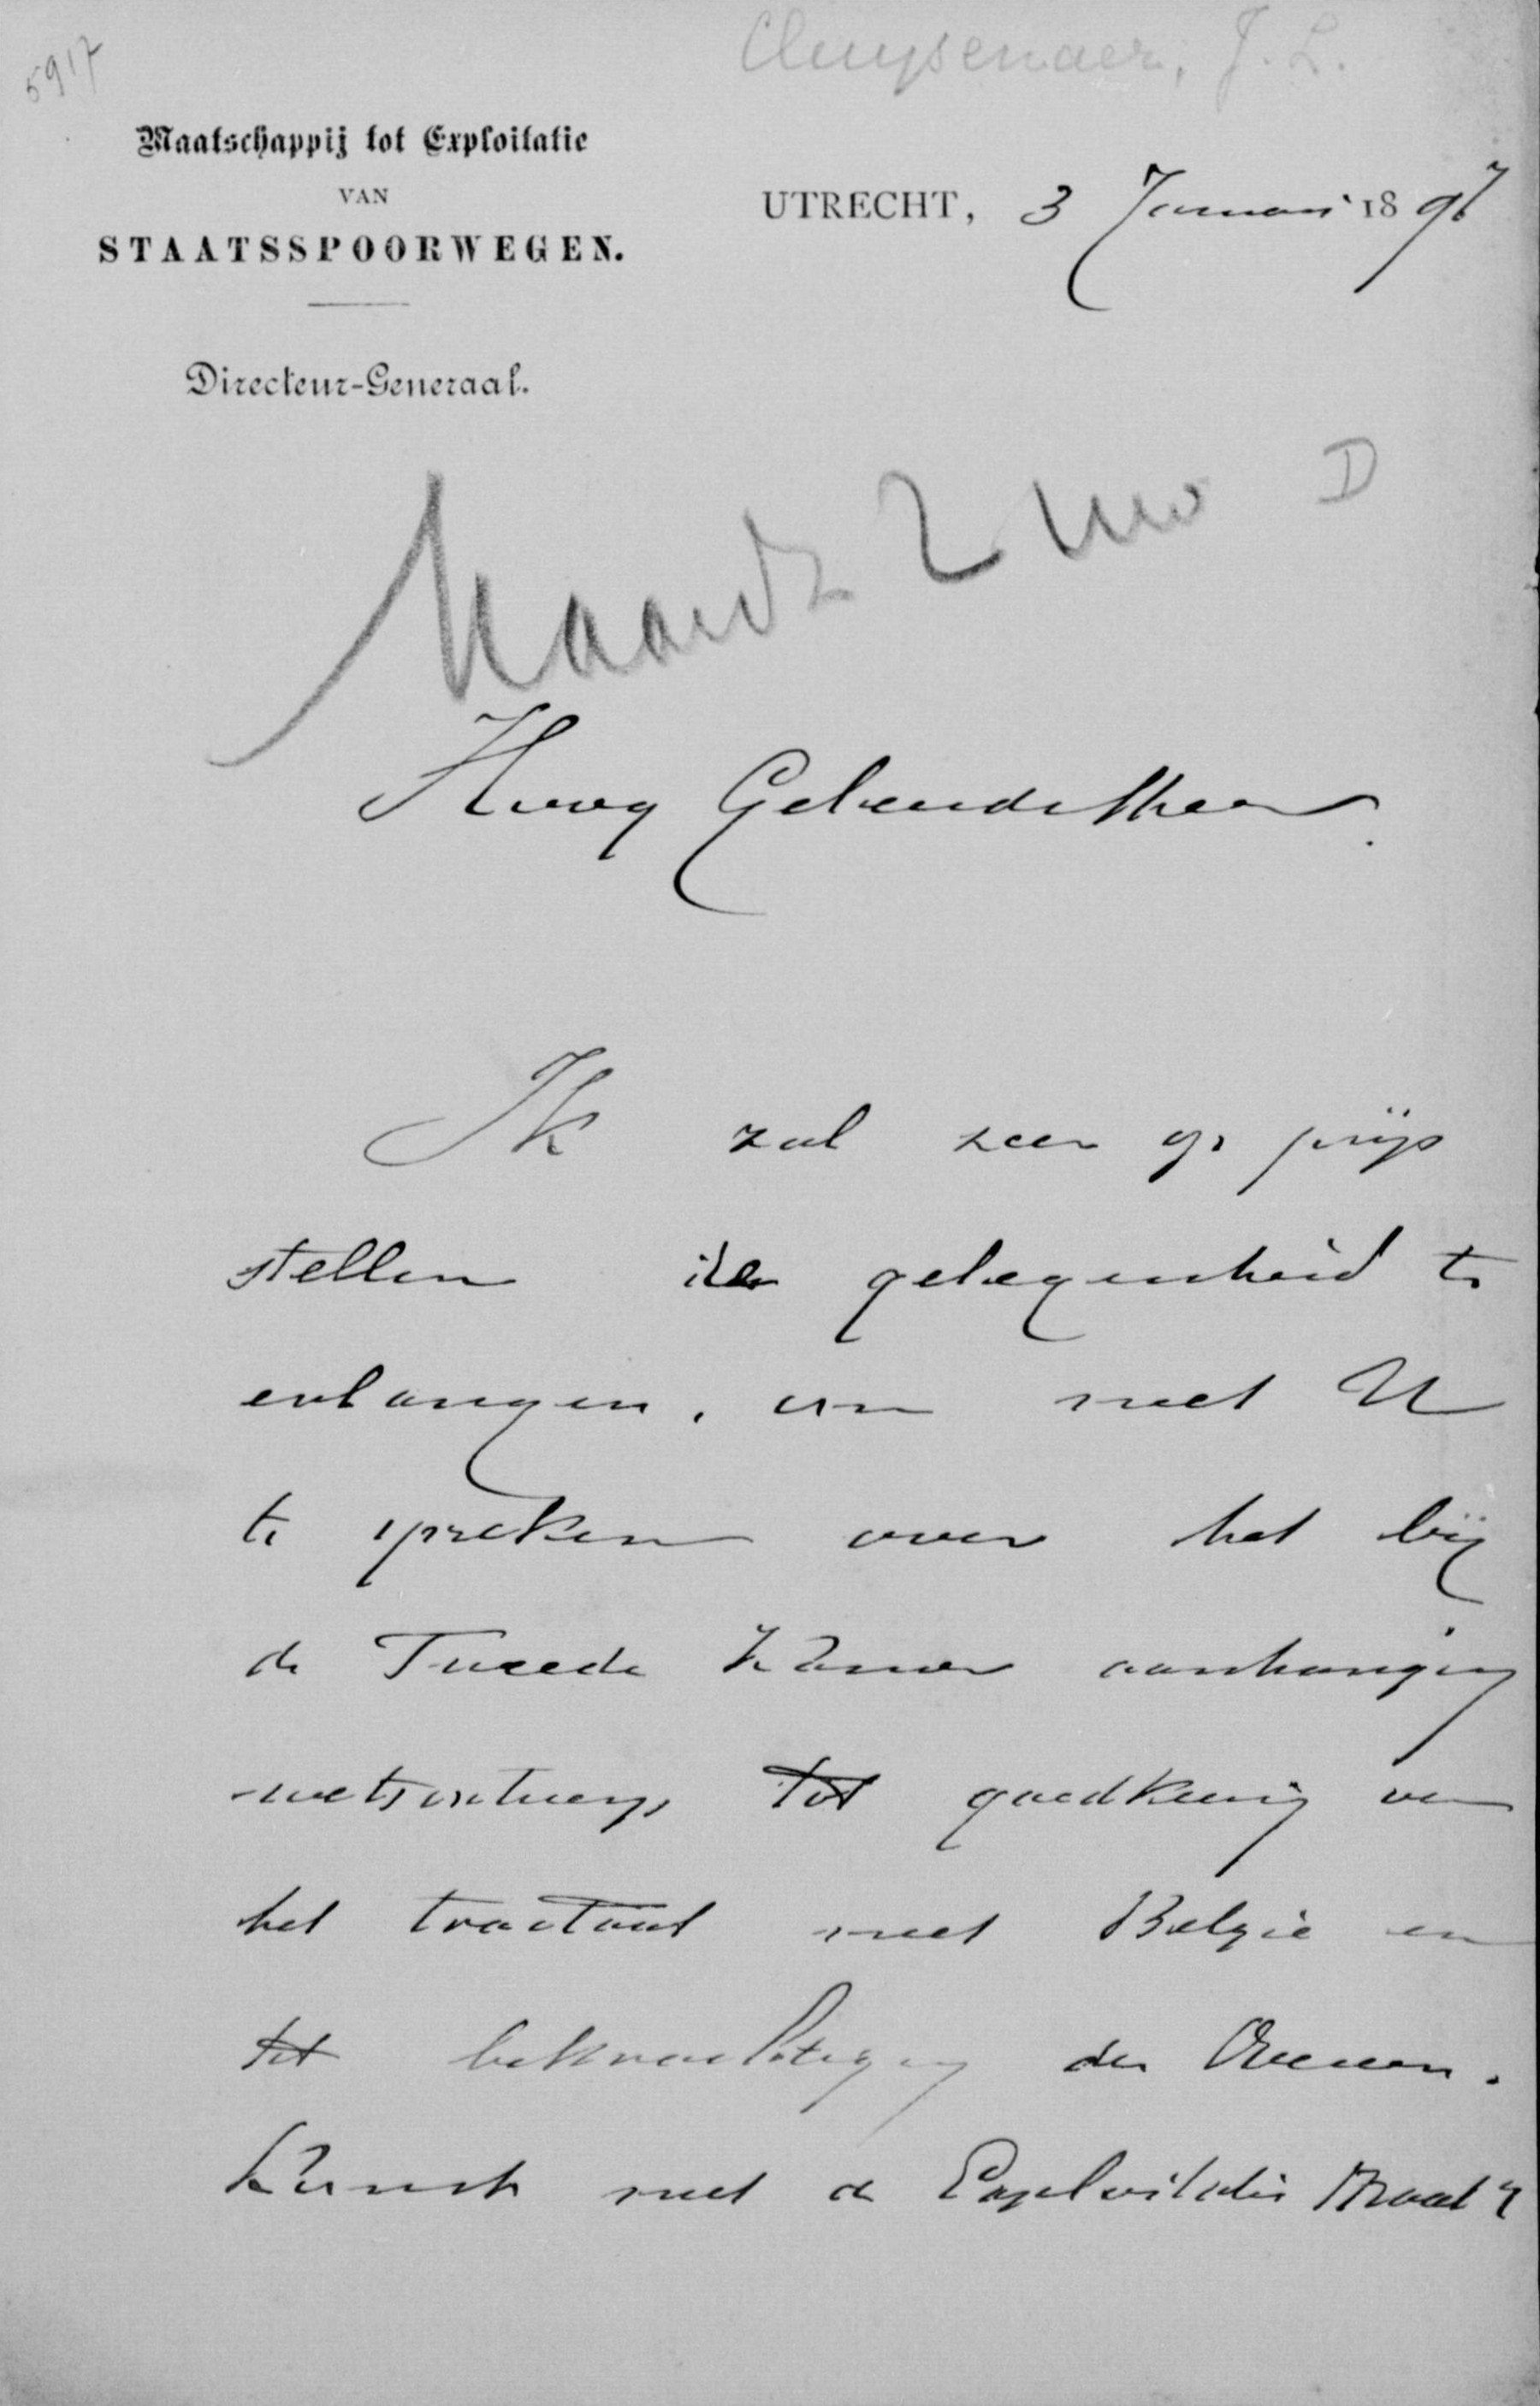 5917
Cluysenaer, J. L.
Maatschappij tot Exploitatie
VAN
STAATSSPOORWEGEN.
UTRECHT, 3 Januari 1897
Directeur-Generaal.
D
Hoog Geleerde Heer
Ik zal zeer op prijs
stellen de gelegenheid te
erlangen, om met U
te spreken over het bij
de Tweede Kamer aanhangig
wetsontwerp tot goedkeuring van
het tractaat met België en
tot bekrachtiging der Overeen.
komst met de Exploitatie Maat